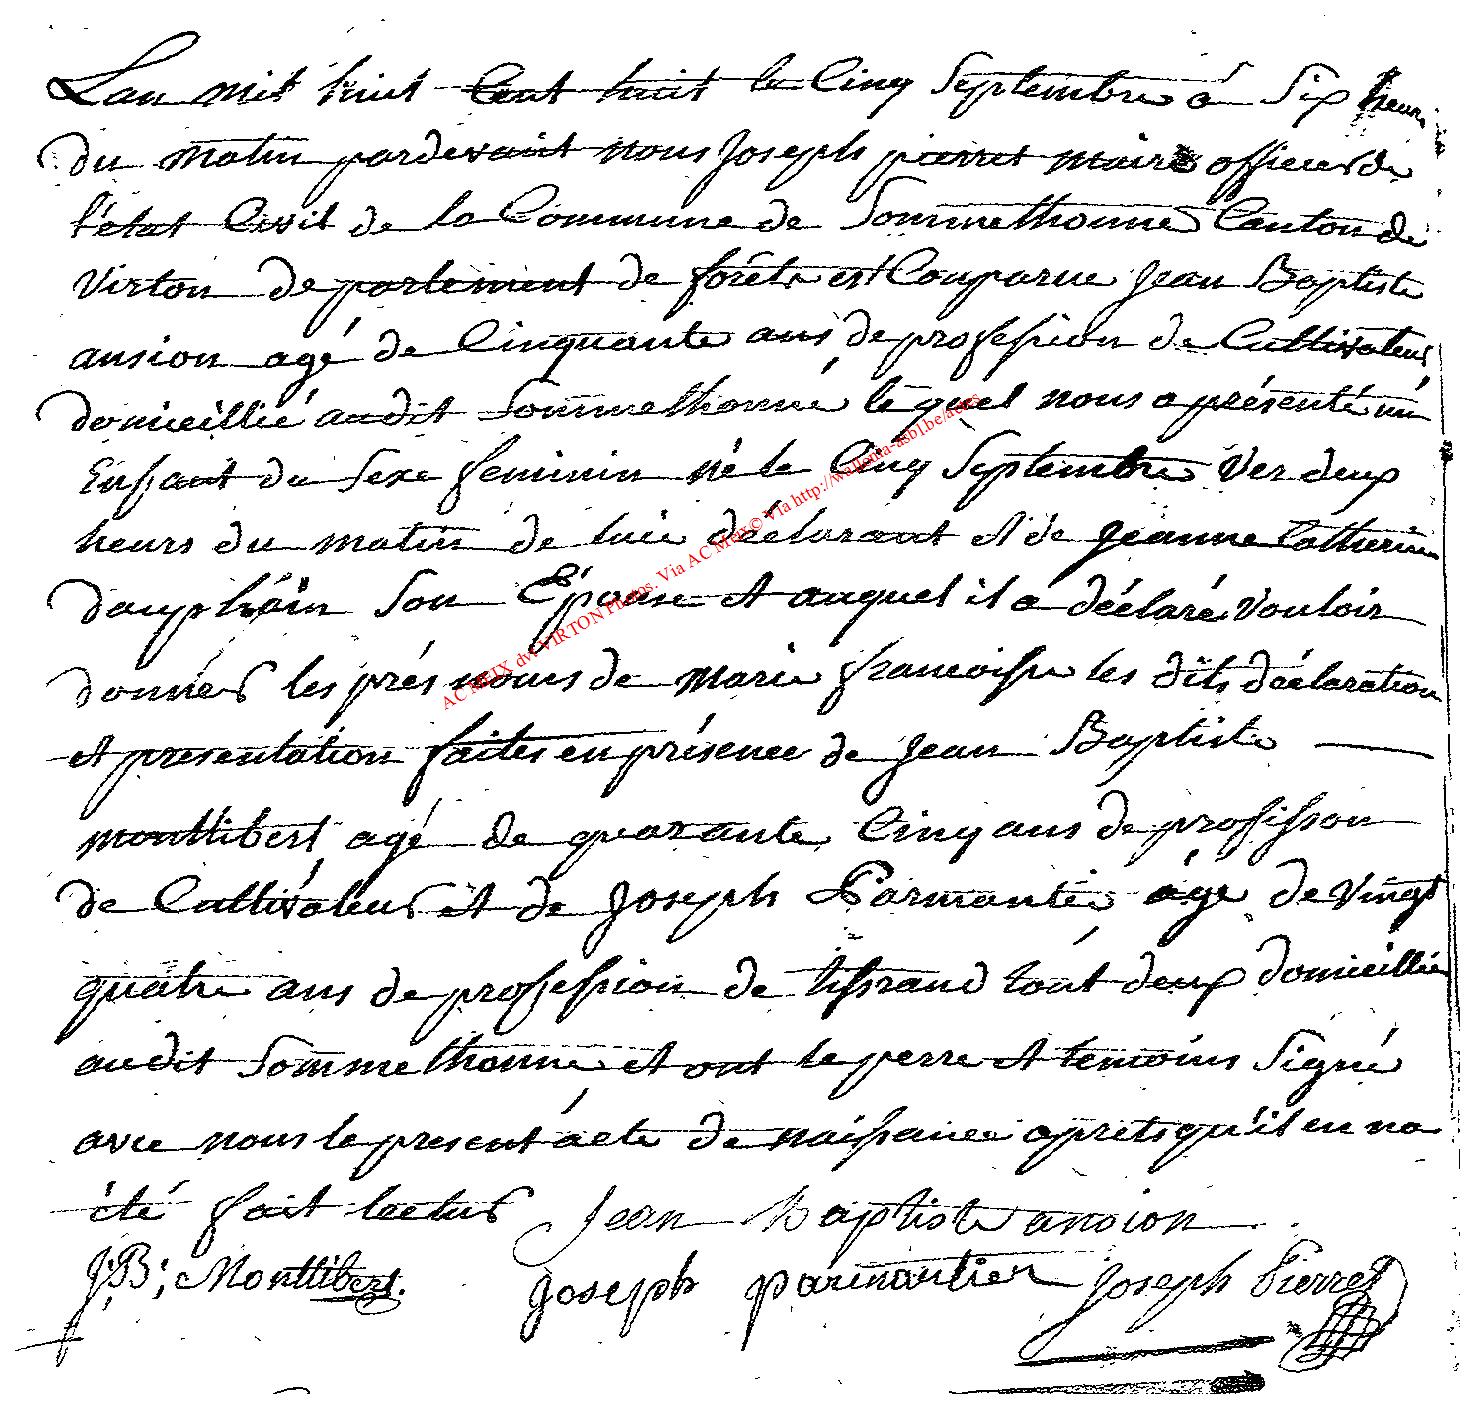 Lan mil huit Cent huit le Cinq Septembre à Six heur
du matin pardevant nous Joseph pierret maire officier de
l'état Civil de la Commune de Sommethonne Canton de
Virton departement de forêts est Comparue Jean Baptiste
ansion agé de Cinquante ans de profession de Cultivateur
domicillié audit Sommethonne le quel nous a présenté un
Enfant du Sexe feminin né le Cinq Septembre Ver deux
heurs du matin de luie déclarant et de Jeanne Catherine
dauphain Son Épouse et auquel il a déclaré Vouloir
donner les prés noms de Marie francoisse les dits déclaration
et presentation faites en présence de Jean Baptiste
montlibert agé de quarante Cinq ans de profisson
de Cultivateur et de Joseph Parmantie agé de Vingt
quatre ans de profession de tissrand tout deux domicillié
audit Sommethonne et ont le perre et temoins Signé
avec nous le present acte de naissance aprets qu'il en na
été fait lectur Jean Baptiste ancion
J:B; Montlibert. Joseph parmantier Joseph Pierret
AC MEIX dvt VIRTON Photos. Via AC Meix© Via http://wallonia-asbl.be/actes